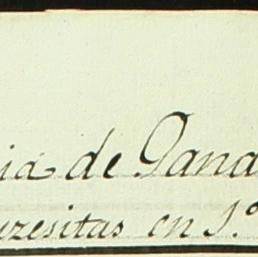 ia de Gana
uzesitas en 1.º